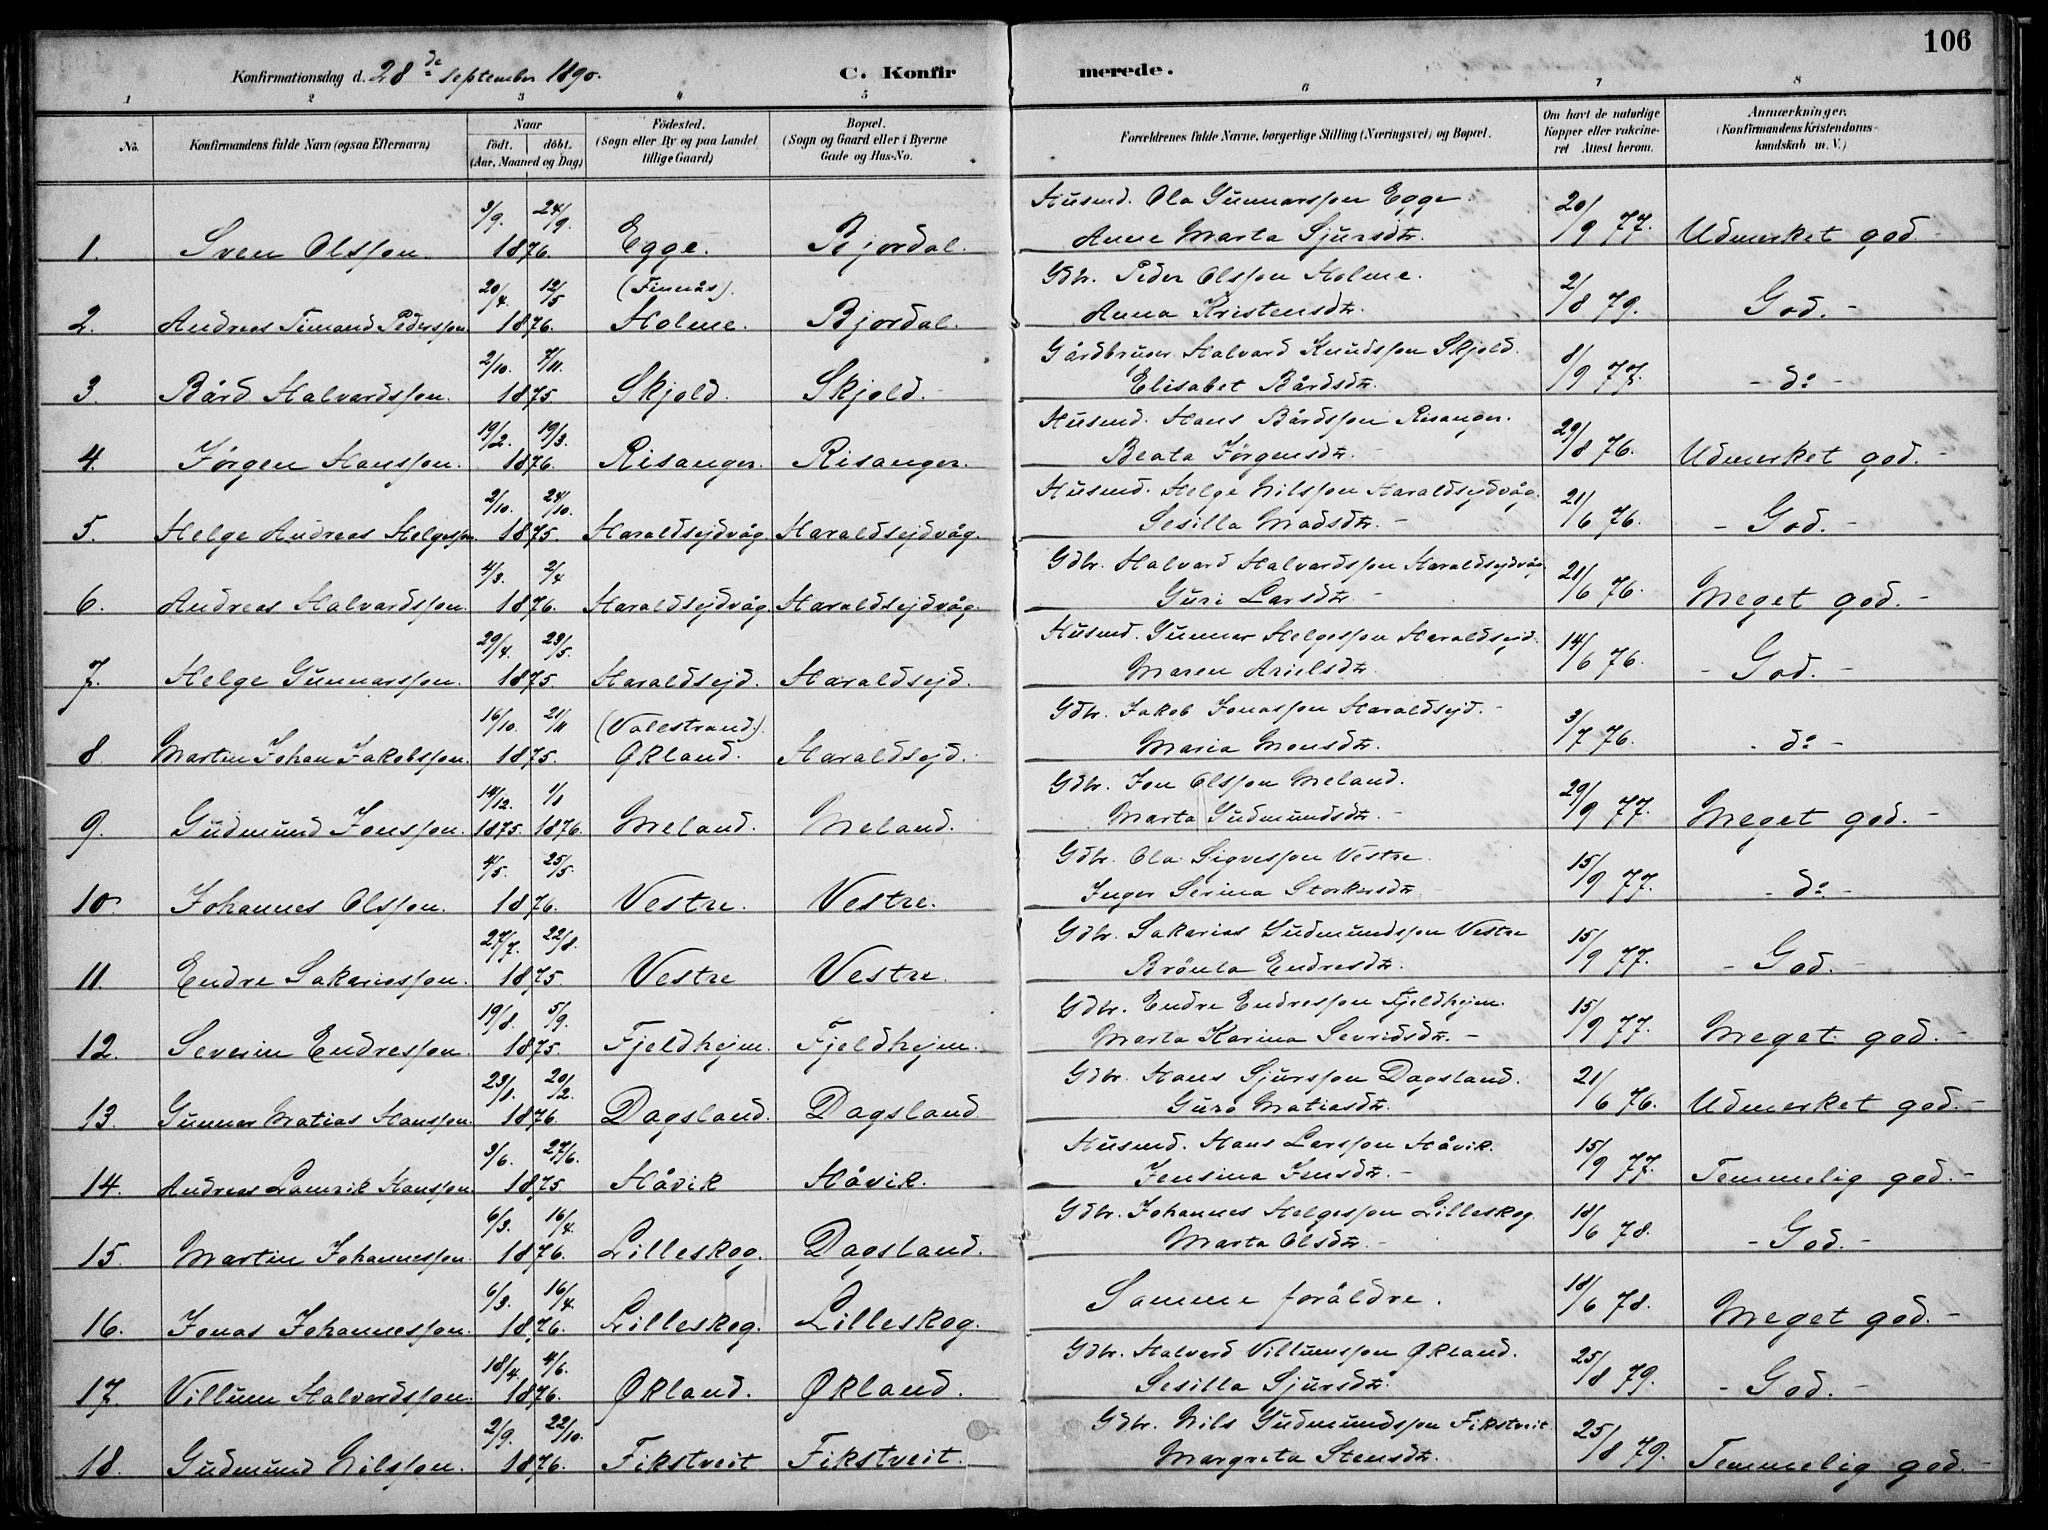 106
Konfirmationsdag d. 28de September 1890. C. Konfirmerede.
1 2 3 4 5 6 7 8
No. Konfirmandens fulde Navn (ogsaa Efternavn) Naar født. døbt. (Aar, Maaned og Dag) Fødested. (Sogn eller By og paa Landet tillige Gaard) Bopæl. (Sogn og Gaard eller i Byerne Gade og Hus-No. Forældrenes fulde Navne, borgerlige Stilling (Næringsvei) og Bopæl. Om havt de naturlige Kopper eller vakcineret Attest herom. Anmærkninger. (Konfirmandens Kristendomskundskab m. V.)
3/9. 24/9. Husmd. Ola Gunnarsson Egge 20/9 77.
1. Sven Olsson. 1876. Egge. Bjordal. Anne Marta Sjursdtr. Udmerket god.-
20/4. 12/5 (Finnås). Gdbr. Peder Olsson Holme. 2/8 79.
2. Andreas Timand Pedersson. 1876. Holme. Bjordal. Anna Kristensdtr. God.-
2/10. 7/11. Gårdbruger Halvard Knudsson Skjold. 8/9 77.
3. Bård Halvardsson. 1875. Skjold. Skjold.- Elisabet Bårdsdtr. - do -
19/2. 19/3. Husmd. Hans Bårdsson Risanger. 29/8 76.
4. Jørgen Hansson. 1876. Risanger. Risanger. Beata Jørgensdtr.- Udmerket god.-
2/10. 24/10. Husmd. Helge Nilsson Haraldsejdvåg. 21/6 76.
5. Helge Andreas Helgesson. 1875. Haraldsejdvåg. Haraldsejdvåg. Sesilla Madsdtr.- - God.-
4/3. 2/4 Gdbr. Halvard Halvardsson Haraldsejdvåg 21/6 76.
6. Andreas Halvardsson. 1876. Haraldsejdvåg. Haraldsejdvåg. Guri Larsdtr.- Meget god.-
29/4. 23/5. Husmd. Gunnar Helgesson Haraldsejd. 14/6 76.
7. Helge Gunnarsson. 1875. Haraldsejd. Haraldsejd. Maren Arielsdtr. - God.-
16/10. 21/11 (Valestrand). Gdbr. Jakob Jonasson Haraldsejd.- 3/7 76.
8. Martin Johan Jakobsson. 1875. Økland. Haraldsejd. Maria Monsdtr. - do -
14/12. 1/1 Gdbr. Jon Olsson Meland. 29/9 77.
9. Gudmund Jonsson. 1875. 1876. Meland. Meland. Marta Gudmundsdtr.- Meget god.-
4/5. 25/5. Gdbr. Ola Sigvesson Vestre. 15/9 77.
10. Johannes Olsson. 1876. Vestre. Vestre. Inger Serina Storkersdtr. - do -
27/7. 22/8. Gdbr. Sakarias Gudmundsson Vestre 15/9 77.
11. Endre Sakariasson. 1875. Vestre Vestre. Brönla Endresdtr. - God.-
19/8. 5/9. Gdbr. Endre Endresson Fjeldhejm. 15/9 77.
12. Severin Endresson. 1875. Fjeldhejm. Fjeldhejm. Marta Karina Sevridsdtr.- Meget god.-
23/1. 20/2. Gdbr. Hans Sjursson Dagsland. 21/6 76.
13. Gunnar Matias Hansson. 1876. Dagsland. Dagsland Guro Matiasdtr. Udmerket god.-
3/6. 27/6. Husmd. Hans Larsson Håvik. 15/9 77.
14. Andreas Hansson. 1875 Håvik Håvik. Jensina Jensdtr.- Temmelig god.-
6/3. 16/4. Gdbr. Johannes Helgesson Lilleskog. 18/6 78.
15. Martin Johannesson. 1876. Lilleskog. Dagsland. Marta Olsdtr.- - God.-
6/3. 16/4. 18/6 78.
16. Jonas Johannesson. 1876. Lilleskog. Lilleskog. Samme foräldre. Meget god.-
18/4. 4/6. Gdbr. Halvard Villumsson Økland. 25/8 79.
17. Villum Halvardsson. 1876. Økland. Økland. Sesilla Sjursdtr. - God.-
2/9. 22/10. Gdbr. Nils Gudmundsson Fikstveit 25/8 79.
18. Gudmund Nilsson. 1876. Fikstveit Fikstveit. Margreta Stensdtr. Temmelig god.-